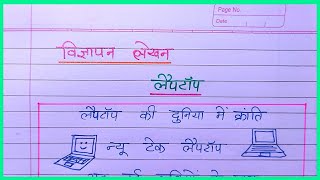 Page No.
Date
विज्ञापन लेखन
लैपटॉप
लैपटॉप की दुनिया में क्रांति
न्यू टेक लैपटॉप